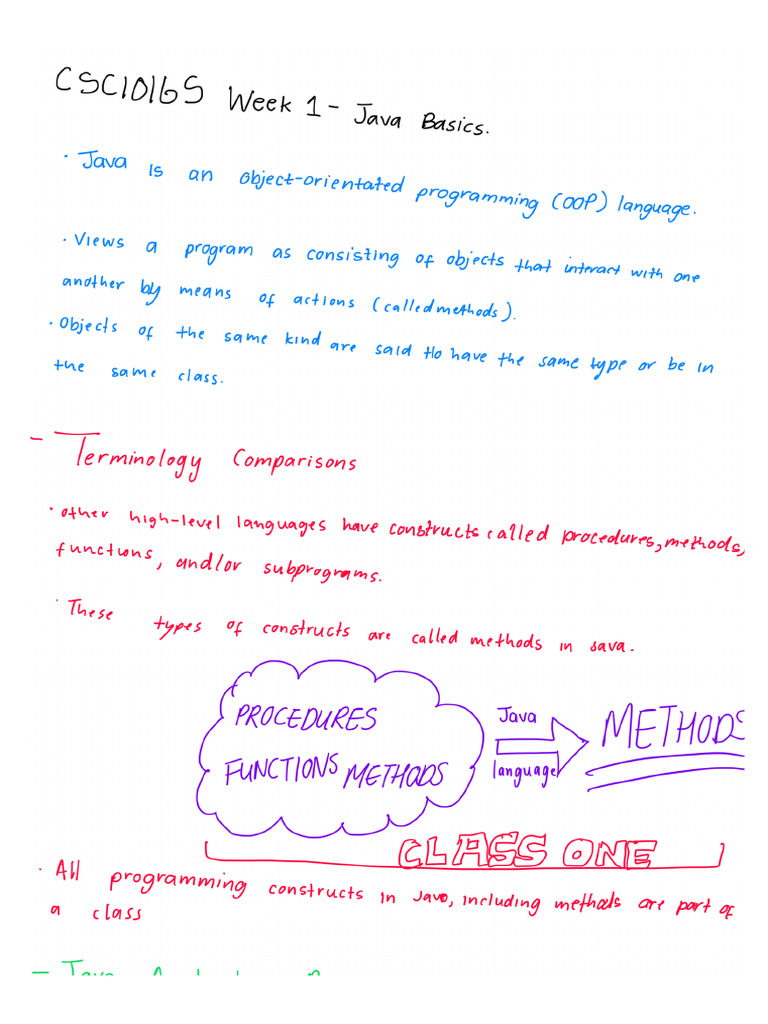 CSC1016S Week 1 - Java Basics.
· Java is an object-orientated programming (OOP) language.
· Views a program as consisting of objects that interact with one
another by means of actions (called methods).
· Objects of the same kind are said to have the same type or be in
the same class.
- Terminology Comparisons
· other high-level languages have constructs called procedures, methods,
functions, and/or subprograms.
· These types of constructs are called methods in Java.
PROCEDURES
FUNCTIONS METHODS
Java
language
METHODS
CLASS ONE
· All programming constructs in Java, including methods are part of
a class
- Java